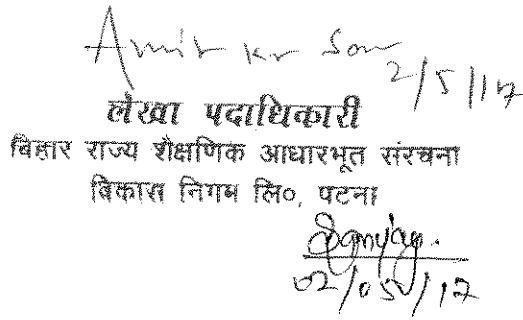 Amit Kr Son
2/5/17
लेखा पदाधिकारी
बिहार राज्य शैक्षणिक आधारभूत संरचना
विकास निगम लि०, पटना
02/05/17